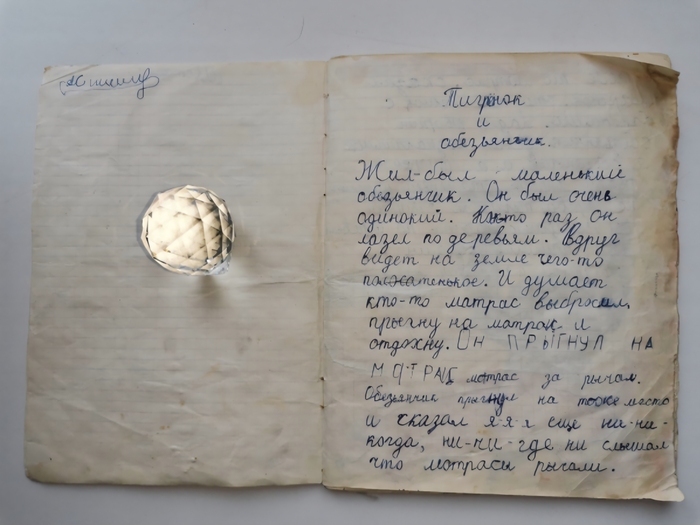 Тигрнок
и
обезьянчик.
Жил-был маленький
обезьянчик. Он был очень
одинокий. раз он
лазел по деревьям. Вдруг
видет на земле чего-то
полосатенькое. И думает
кто-то матрас выбросил,
прыгну на матрак и
отдохну. Он ПРЫГНУЛ НА
МАТРАЦ матрас за рычал.
Обезьянчик прыгнул на тоже место
и сказал я-я-я еще ни-ни-
когда, ни-ни-где ни слышал
что мотрасы рычали.